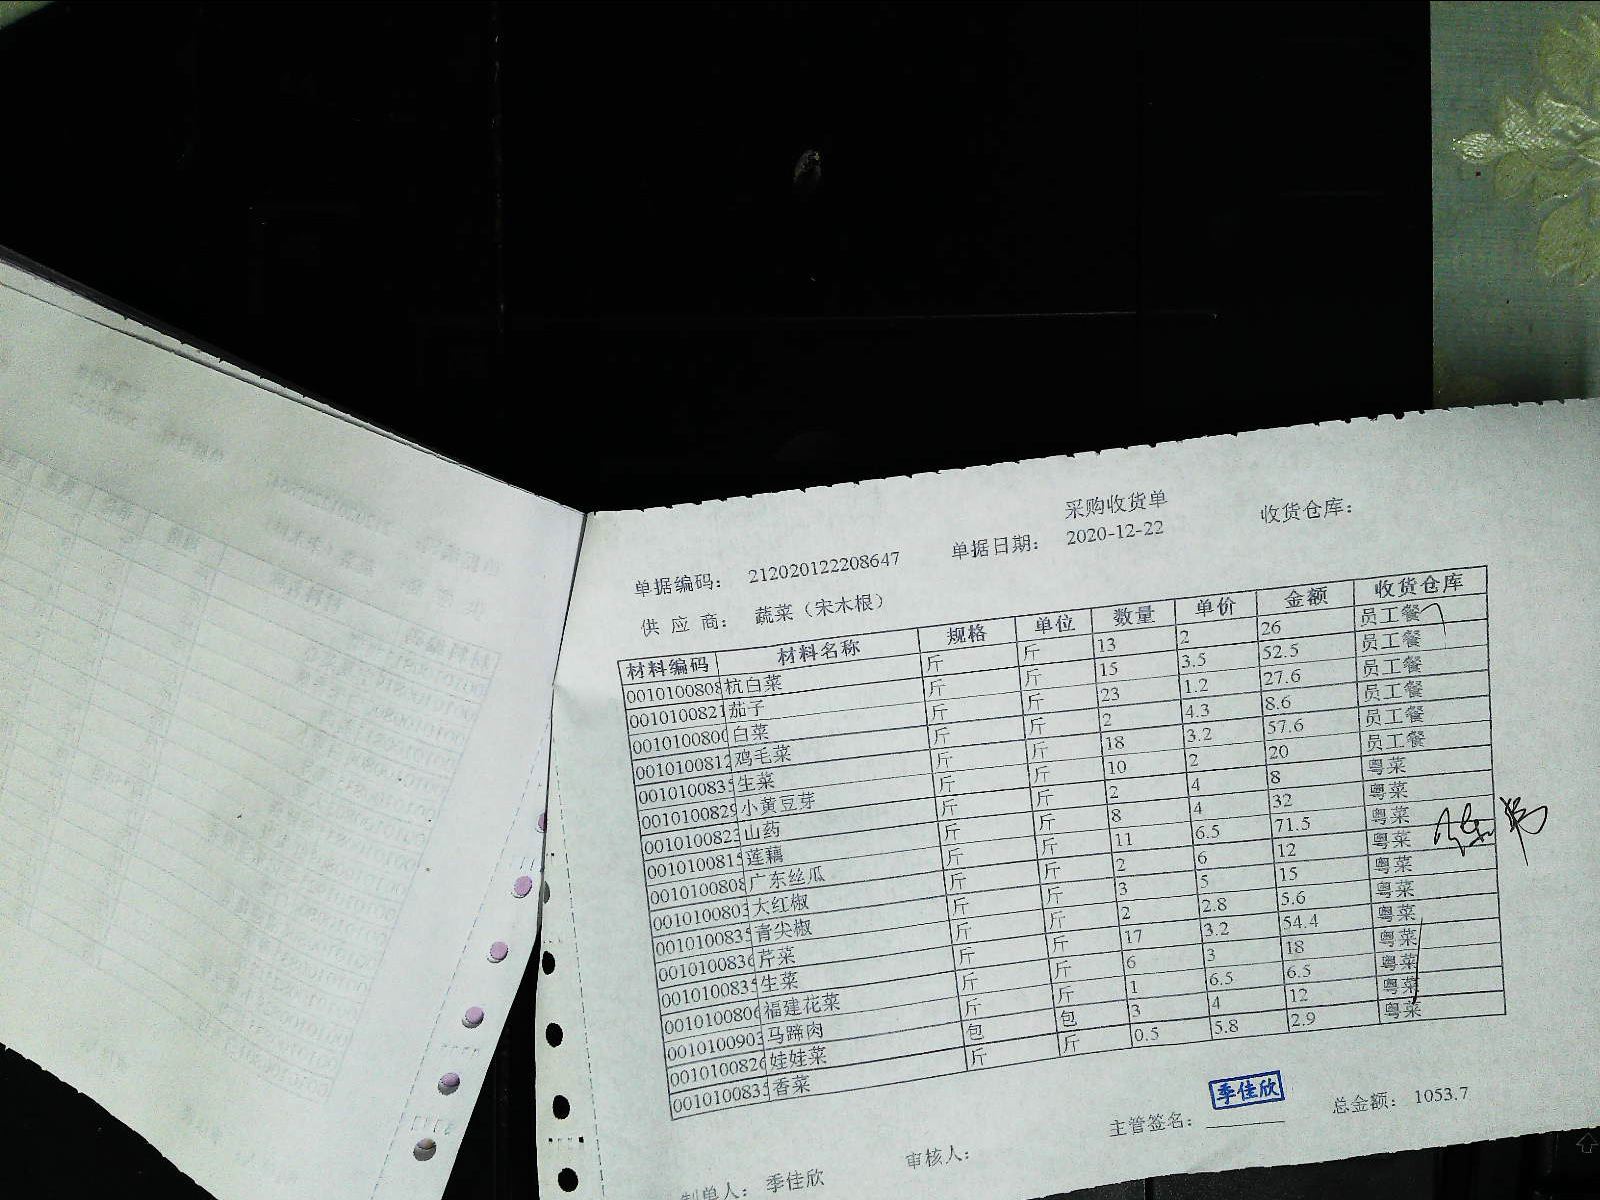 采购收货单
单据编码： 212020122208647 单据日期： 2020-12-22 收货仓库：
供 应 商： 蔬菜（宋木根）
材料编码 材料名称 规格 单位 数量 单价 金额 收货仓库
0010100808 杭白菜 斤 斤 13 2 26 员工餐
0010100821 茄子 斤 斤 15 3.5 52.5 员工餐
001010080 白菜 斤 斤 23 1.2 27.6 员工餐
0010100812 鸡毛菜 斤 斤 2 4.3 8.6 员工餐
001010083 生菜 斤 斤 18 3.2 57.6 员工餐
001010082 小黄豆芽 斤 斤 10 2 20 员工餐
0010100823 山药 斤 斤 2 4 8 粤菜
001010081 莲藕 斤 斤 8 4 32 粤菜
001010080 广东丝瓜 斤 斤 11 6.5 71.5 粤菜
0010100803 大红椒 斤 斤 2 6 12 粤菜
001010083 青尖椒 斤 斤 3 5 15 粤菜
001010083 芹菜 斤 斤 2 2.8 5.6 粤菜
001010083 生菜 斤 斤 17 3.2 54.4 粤菜
001010080 福建花菜 斤 斤 6 3 18 粤菜
0010100903 马蹄肉 斤 斤 1 6.5 6.5 粤菜
001010082 娃娃菜 包 包 3 4 12 粤菜
001010083 香菜 斤 斤 0.5 5.8 2.9 粤菜
制单人： 季佳欣 审核人： 主管签名： 季佳欣 总金额： 1053.7